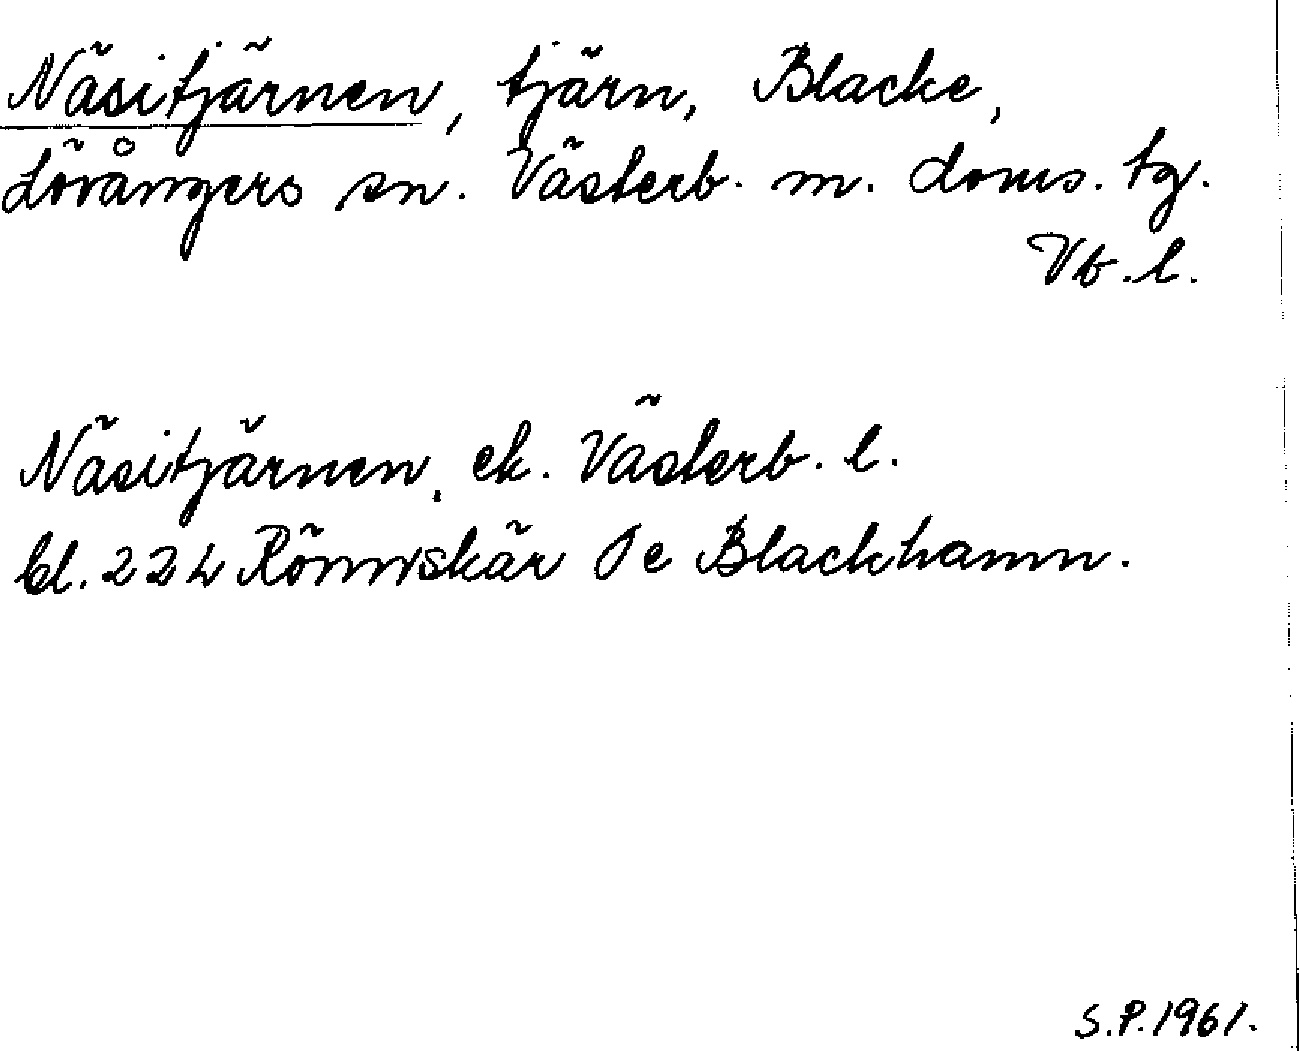 Näsitjärnen, tjärn, Blacke,
Lövångers sn. Västerb. m. doms. tg.
Vb. l.
Näsitjärnen, ek. Västerb. l.
bl. 224 Rönnskär Blackhamn.
S.P. 1961.